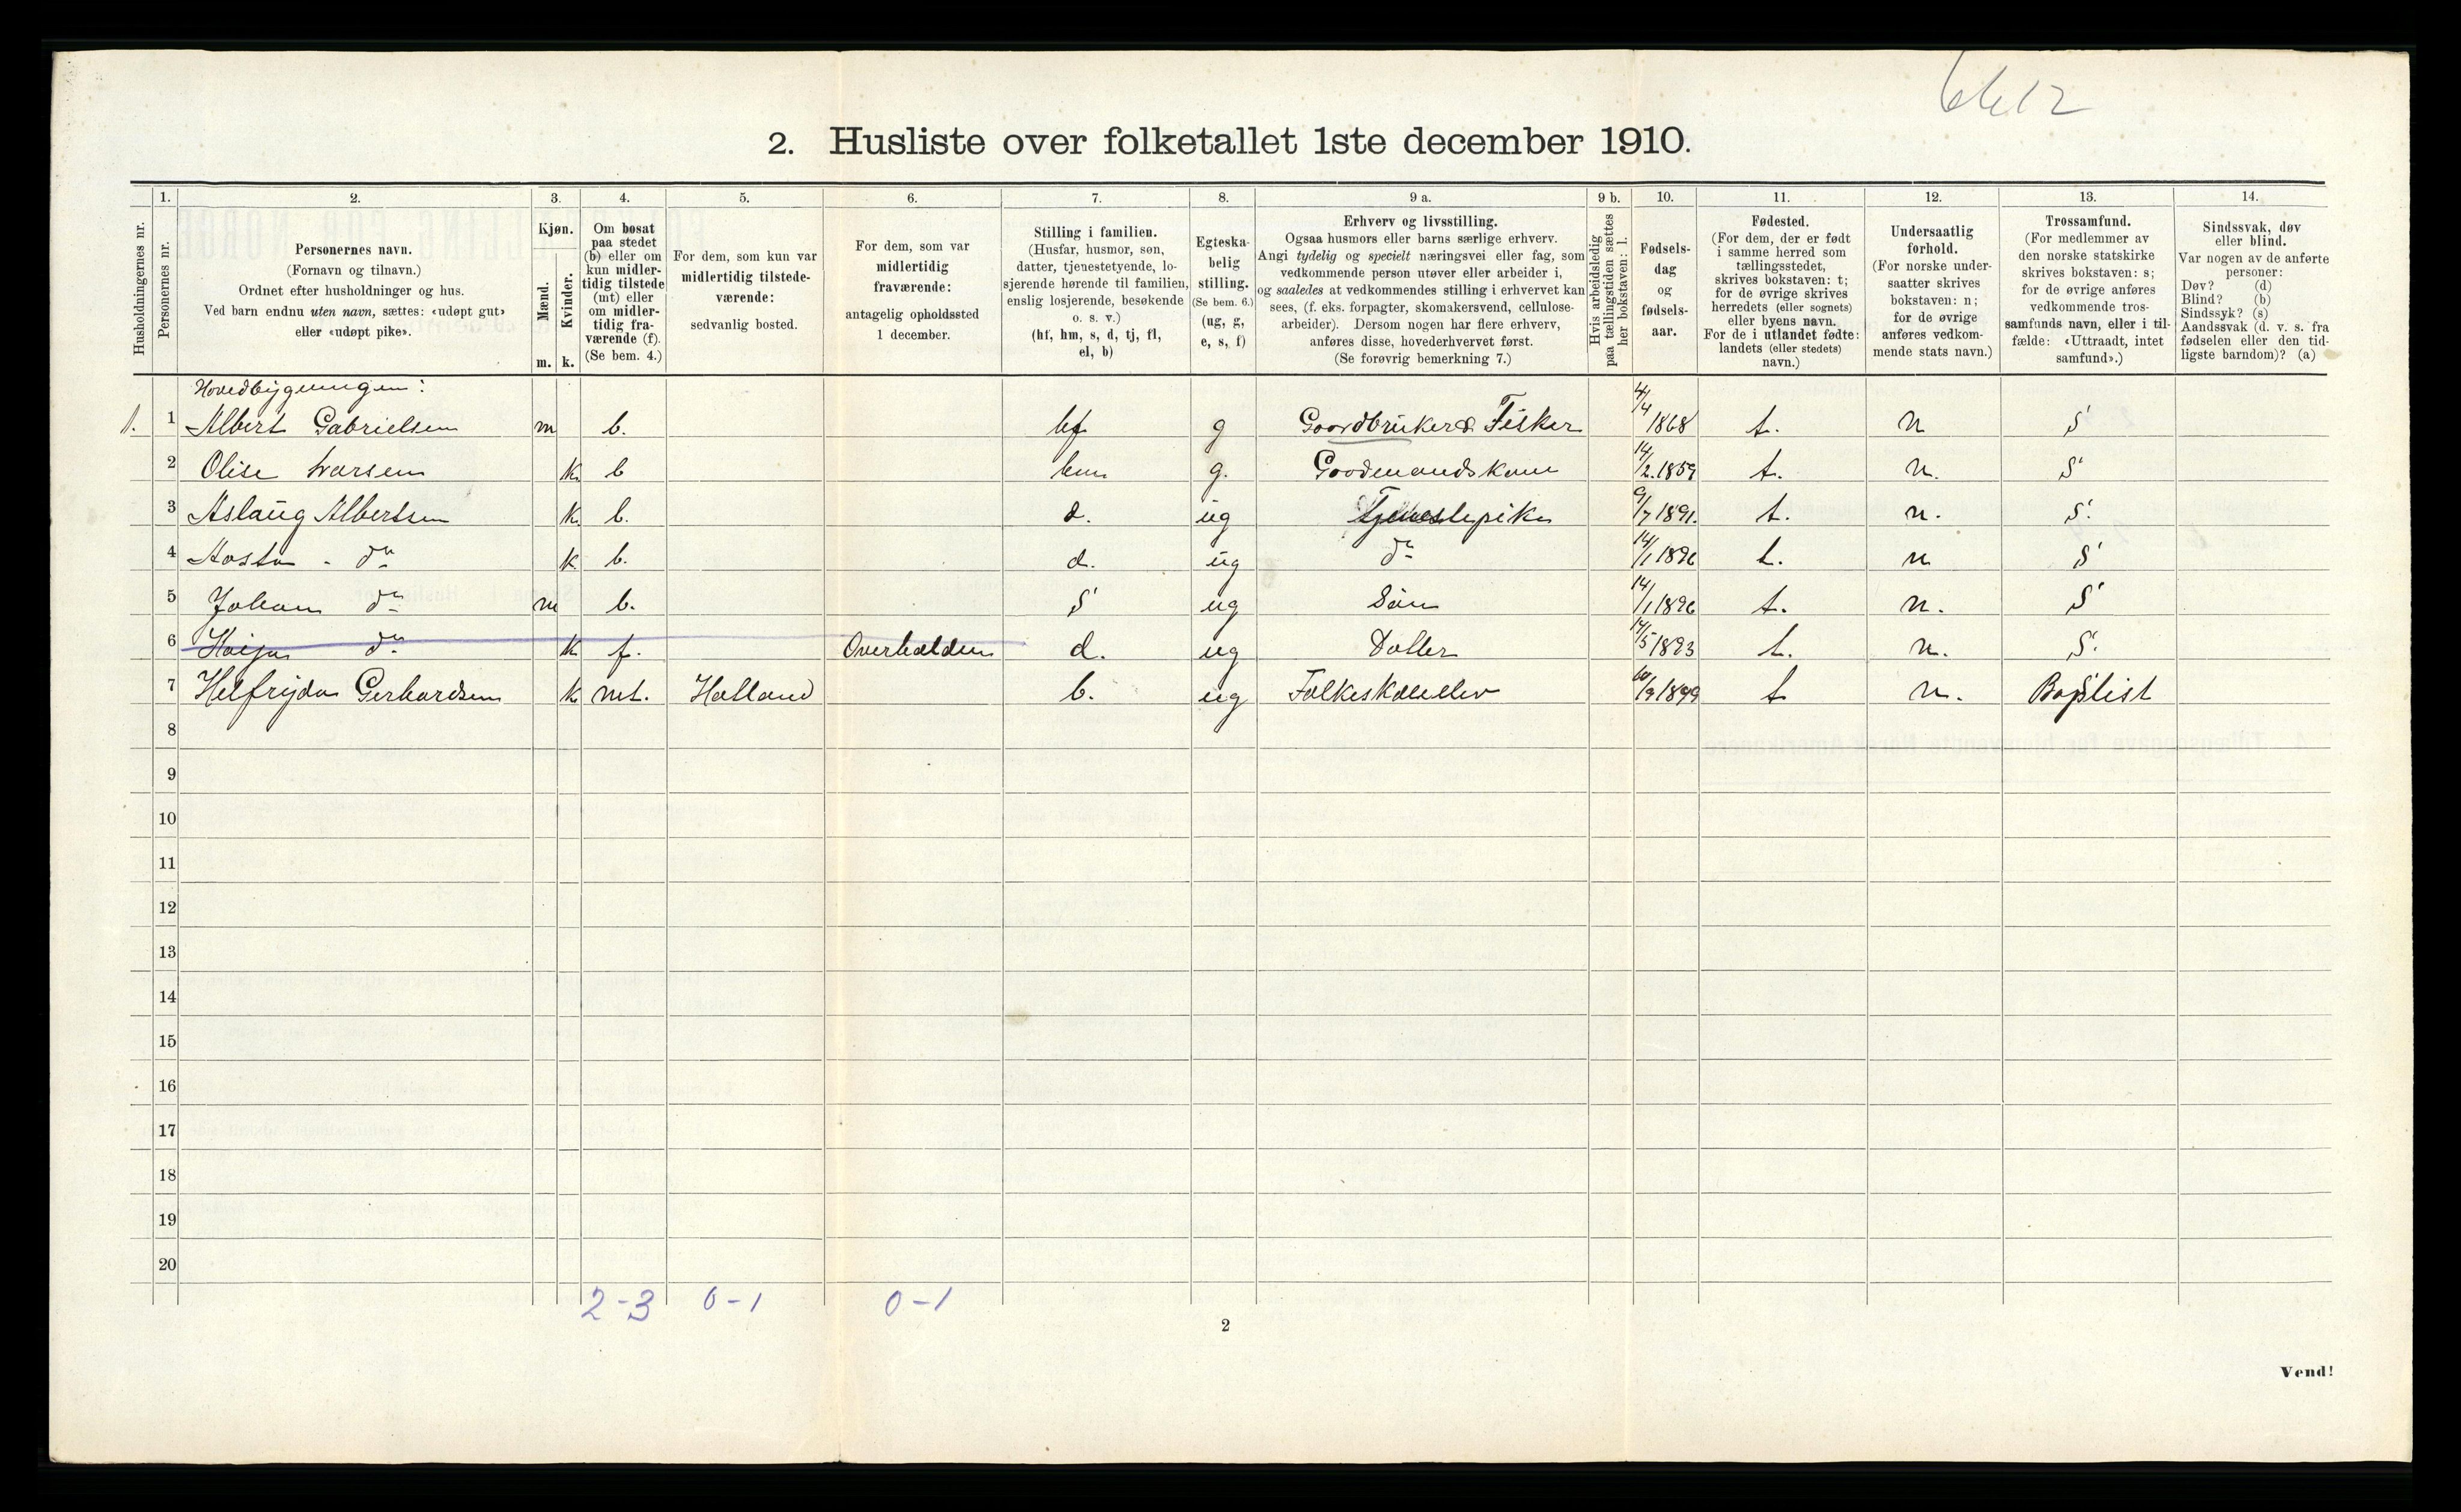 6612
2. Husliste over folketallet 1ste december 1910.
1. 2. 3. 4. 5. 6. 7. 8. 9 a. 9 b. 10. 11. 12. 13. 14.
Husholdningernes nr.
Personernes nr.
Personernes navn.
(Fornavn og tilnavn.)
Ordnet efter husholdninger og hus.
Ved barn endnu uten navn, sættes: «udøpt gut»
eller «udøpt pike».
Kjøn.
Mænd.
Kvinder.
m. k.
Om bosat
paa stedet
(b) eller om
kun midler-
tidig tilstede
(mt) eller
om midler-
tidig fra-
værende (f).
(Se bem. 4.)
For dem, som kun var
midlertidig tilstede-
værende:
sedvanlig bosted.
For dem, som var
midlertidig
fraværende:
antagelig opholdssted
1 december.
Stilling i familien.
(Husfar, husmor, søn,
datter, tjenestetyende, lo-
sjerende hørende til familien,
enslig losjerende, besøkende
o. s. v.)
(hf, hm, s, d, tj, fl,
el, b)
Egteska-
belig
stilling.
(Se bem. 6.)
(ug, g,
e, s, f)
Erhverv og livsstilling.
Ogsaa husmors eller barns særlige erhverv.
Angi tydelig og specielt næringsvei eller fag, som
vedkommende person utøver eller arbeider i,
og saaledes at vedkommendes stilling i erhvervet kan
sees, (f. eks. forpagter, skomakersvend, cellulose-
arbeider). Dersom nogen har flere erhverv,
anføres disse, hovederhvervet først.
(Se forøvrig bemerkning 7.)
Hvis arbeidsledig
paa tællingstiden sættes
her bokstaven: l.
Fødsels-
dag
og
fødsels-
aar.
Fødested.
(For dem, der er født
i samme herred som
tællingsstedet,
skrives bokstaven: t;
for de øvrige skrives
herredets (eller sognets)
eller byens navn.
For de i utlandet fødte:
landets (eller stedets)
navn.)
Undersaatlig
forhold.
(For norske under-
saatter skrives
bokstaven: n;
for de øvrige
anføres vedkom-
mende stats navn.)
Trossamfund.
(For medlemmer av
den norske statskirke
skrives bokstaven: s;
for de øvrige anføres
vedkommende tros-
samfunds navn, eller i til-
fælde: «Uttraadt, intet
samfund».)
Sindssvak, døv
eller blind.
Var nogen av de anførte
personer:
Døv? (d)
Blind? (b)
Sindssyk? (s)
Aandssvak (d. v. s. fra
fødselen eller den tid-
ligste barndom)? (a)
Hovedbygningen:
1. 1 Albert Gabrielsen m b. hf g Gaardbruker & Fisker 4/4 1868 t. n S
2 Olise Ivarsen k b hm g. Gaardmandskone 14/2.1859 t. n. S
3 Aslaug Albertsen k b. d. ug Tjenestepike 9/7 1891. t. n. S.
4 Aasta - do k b. d. ug do 14/1 1896 t. n S
5 Johan do m b. S ug Sön 14/1 1896 t. n. S
6 do k f. Overhalden d. ug Datter 14/5 1893 t. n. S.
7 Helfrida Gerhardsen k mt. Halland b. ug Folkeskoleelev /9 1899 t n. Baptist
8
9
10
11
12
13
14
15
16
17
18
19
20
2-3 0-1 0-1
2
Vend!